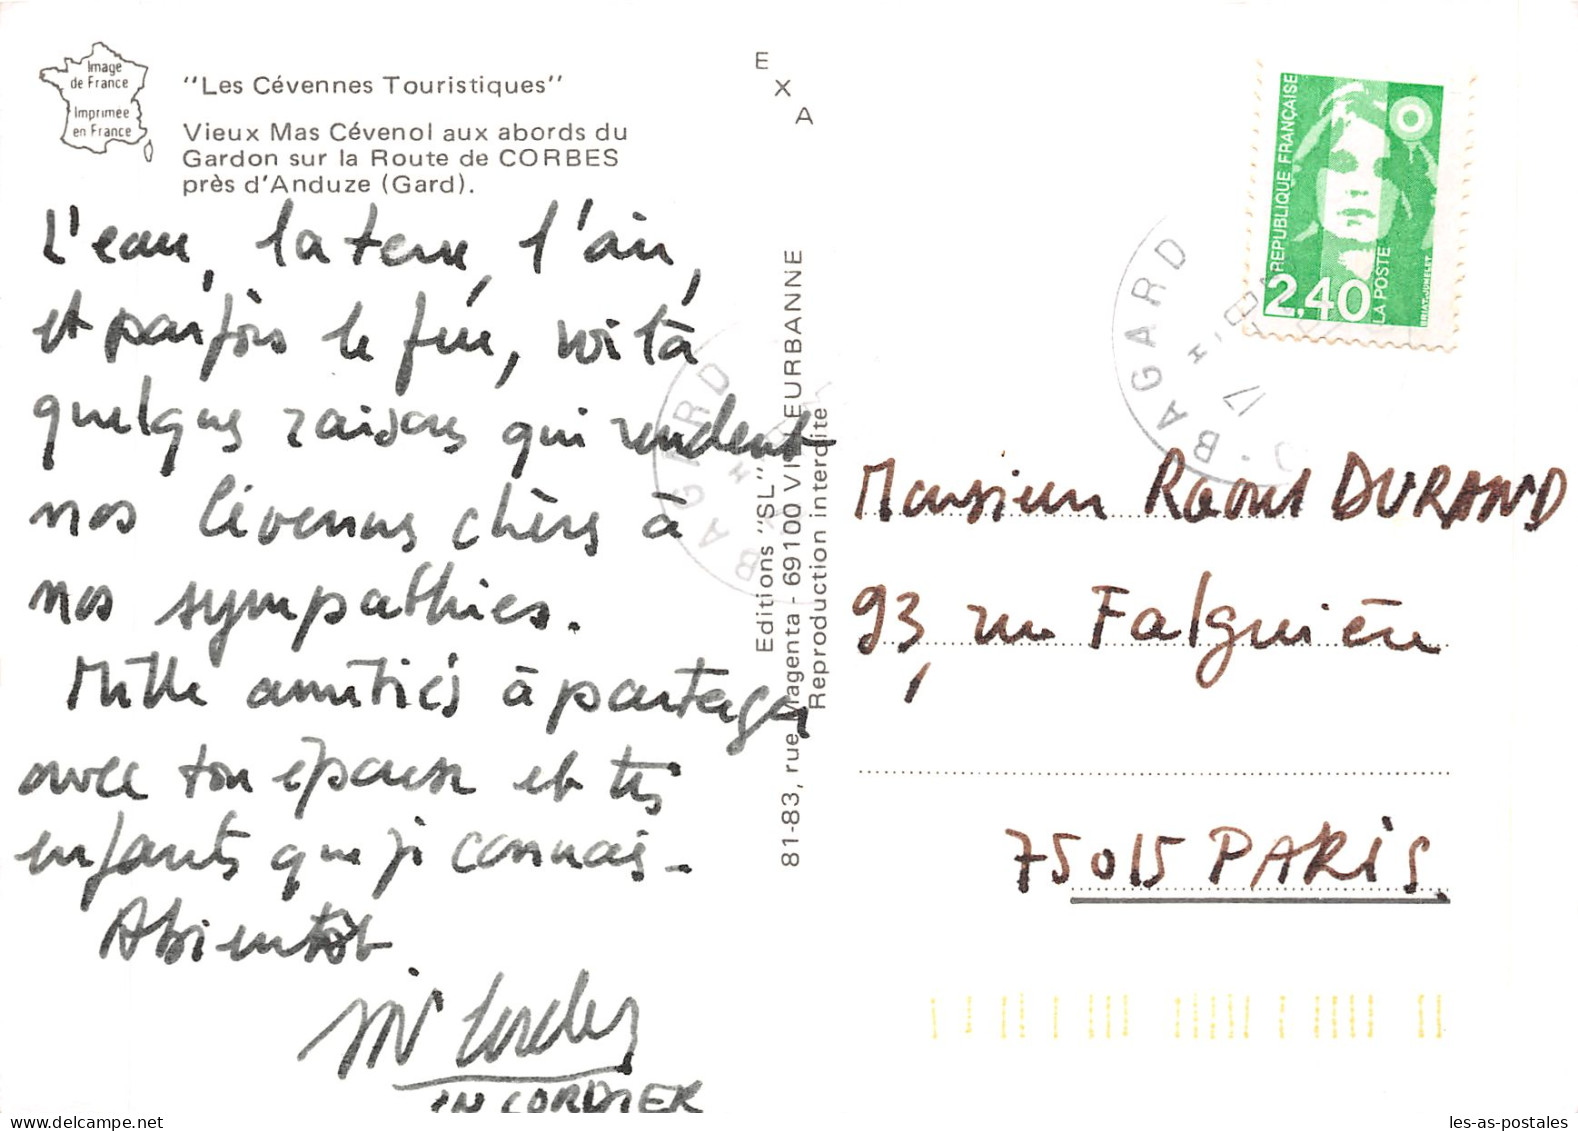 Image
de France
Imprimée
en France
"Les Cévennes Touristiques"
Vieux Mas Cévenol aux abords du
Gardon sur la Route de CORBES
près d'Anduze (Gard).
L'eau, la terre, l'air,
et parfois le feu, voilà
quelques raisons qui rendent
nos Cévennes chères à
nos sympathies.
Mille amitiés à partager
avec ton épouse et tes
enfants que je connais.
A bientôt
Cordier
CORDIER
E
X
A
Editions "SL"
81-83, rue Magenta - 69100 VILLEURBANNE
Reproduction interdite
BAGARD
REPUBLIQUE FRANÇAISE
2,40
LA POSTE
BRIAT-JUMELET
BAGARD
17
Monsieur Raoul DURAND
93, rue Falguière
75015 PARIS
les-as-postales